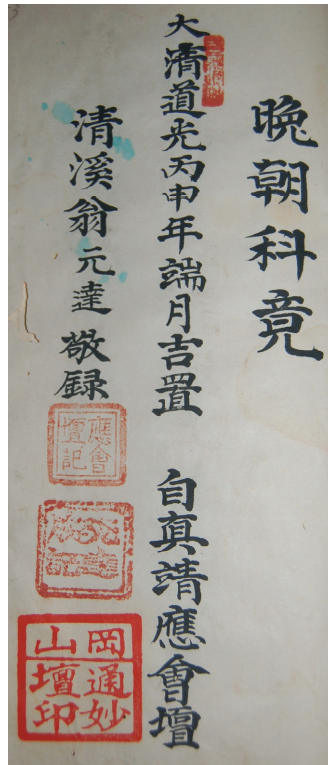 晚朝科竟
大清道光丙申年端月吉置 自真靖應會壇
清溪翁元達敬録
應會壇記
岡通妙山壇印